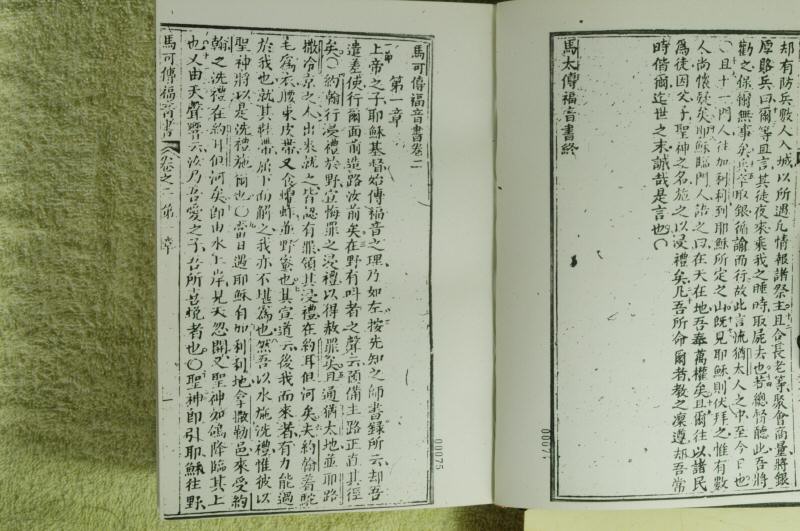 却有防兵數人入城以所遇凡情報諸祭主且合長老等聚會商量將銀
厚賂兵曰爾等且言其徒夜來乘我之睡時取屍去也若總督聽此吾將
勸之保爾無事矣兵卒取銀循諭而行故此言流猶太人之中至今日也
〇且十一門人往加利利到耶穌所定之山既見耶穌則伏拜之惟有數
人尚懷疑矣耶穌臨門人語之曰在天在地吾奉萬權矣且爾往以諸民
為徒因父子聖神之名施之以浸禮矣凡吾所命爾者教之凜遵却吾常
時偕爾迄世之末誠哉是言也〇
馬太傳福音書終
00074
馬可傳福音書卷二
第一章
上帝之子耶穌基督始傳福音之理乃如左按先知之師書錄所云却吾
遣差使行爾面前造路汝前矣在野有呌者之聲云預備主路正直其徑
矣〇約翰行浸禮於野宣悔罪之浸禮以得赦罪矣且通猶太地並耶路
撒冷京之人出來就之皆認有罪領其浸禮在約耳但河矣夫約翰着駝
毛為衣腰束皮帶又食蝗虫並野蜜也其宣道云後我而來者有力能過
於我也就其鞋帶屈下而觧之我亦不堪為也然吾以水施洗禮惟彼以
聖神將以是洗禮施爾也〇當日遇耶穌自加利利地拿撒勒邑來受約
翰之洗禮在約耳但河矣即由水上岸見天忽開又聖神如鴿降臨其上
也又由天聲響云汝乃吾愛之子吾所喜悅者也〇聖神即引耶穌往野
馬可傳福音書 卷之二 第一章 一
00075